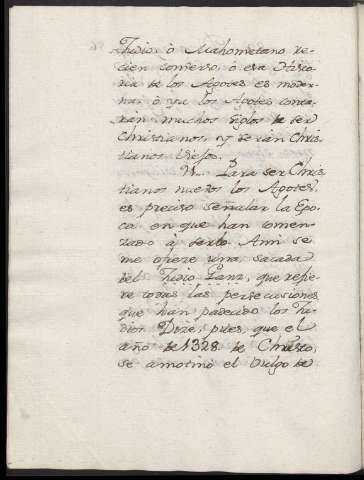 Judio, ò Mahometano re-
cien converso, ò esa Histo-
ria de los Agotes es moder-
na, ò ya los Agotes conta-
rán muchos siglos de ser
Christianos, y serán Chris-
tianos viejos.
Para ser Chris-
tianos nuevos los Agotes,
es preciso señalar la Epo-
ca en que han comen-
zado à serlo. Ami se
me ofrece una, sacada
del Judio que refie-
re todas las persecuciones
que han padecido los Ju-
dios. Dize, pues, que el
año de 1328 de Christo,
se amotinò el Vulgo de